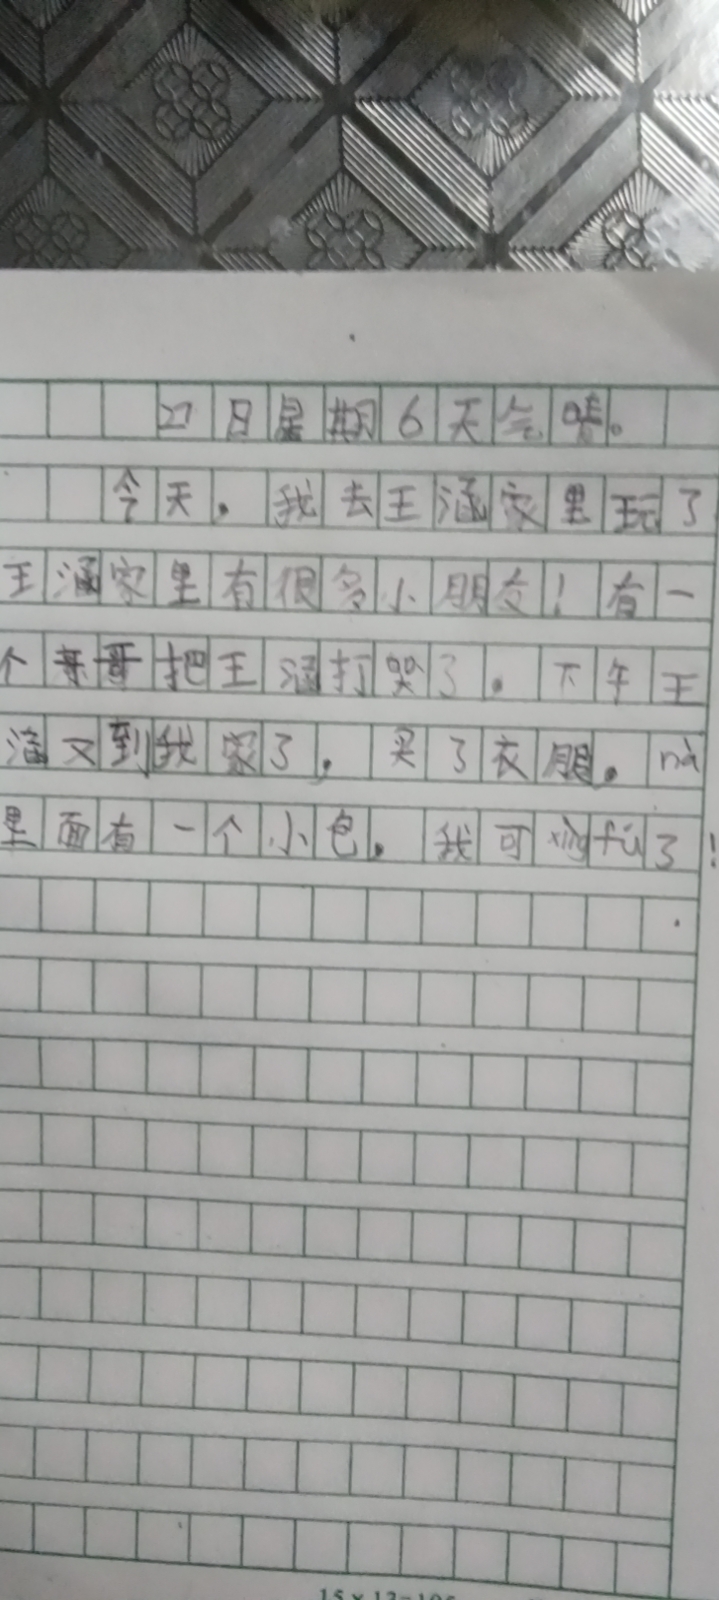 27日星期6天气晴。
今天。我去王涵家里玩了
王涵家里有很多小朋友！有一
个哥哥把王涵打哭了。下午王
涵又到我家了，买了衣服。nà
里面有一个小包。我可xìngfú了！